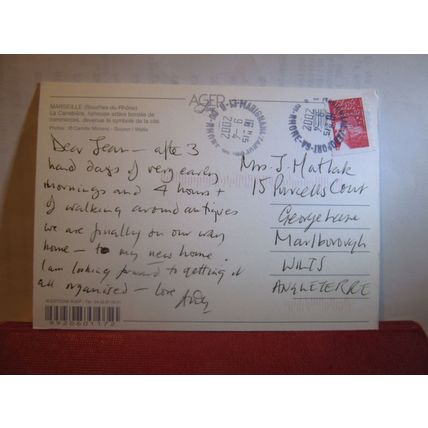 MARSEILLE (Bouches-du-Rhône)
La Canebière, fameuse artère bordée de
commerces, devenue le symbole de la cité.
AGEP
13-MARIGNANE
16H15
9-4
2002
BDR-RHONE
Dear Jean - after 3
hard days of very early
mornings and 4 hours +
of walking around antiques
we are finally on our way
home - to my new home.
I am looking forward to getting it
all organised - love Andy
Mrs J. Matlak
15 Purcells Court
George Lane
Marlborough
WILTS
ANGLETERRE
9920601172